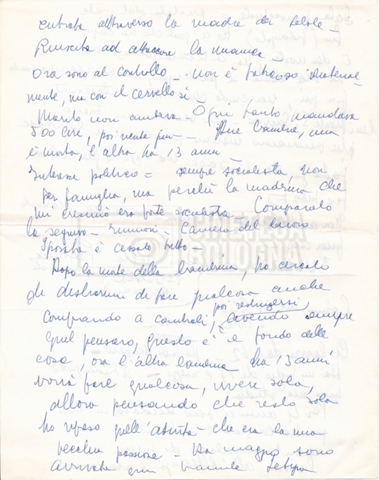 entrata attraverso la madre di
Riuscita ad attaccare la manica -
Ora sono al controllo - non è faticoso material
mente, ma con il cervello sì -
Marito non aiutava - Ogni tanto mandava
500 lire, poi niente più - due bambine, una
è morta, l'altra ha 13 anni -
Interesse politico = sempre socialista, non
per famiglia, ma perché la madrina che
mi era socialista. Comprando
la - riunioni - Camera del lavoro
Sposata è cessato tutto -
Dopo la morte della bambina, ho cercato
di distrarmi di fare qualcosa anche
comprando a cambiali, avendo sempre
quel pensiero, questo è il fondo delle
cose, ora l'altra bambina ha 13 anni
vorrà fare qualcosa, vivere sola,
allora pensando che resto sola
ho ripreso quell'attività che era la mia
vecchia passione - In maggio sono
arrivata